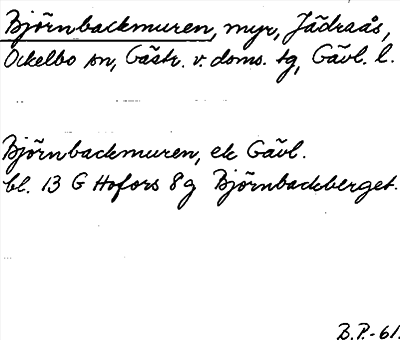 Björnbackmuren, myr, Jädraås,
Ockelbo sn, Gästr. v. doms. tg, Gävl. l.
Björnbackmuren, ek Gävl.
bl. 13 G Hofors 8g Björnbackberget.
B.P.-61.